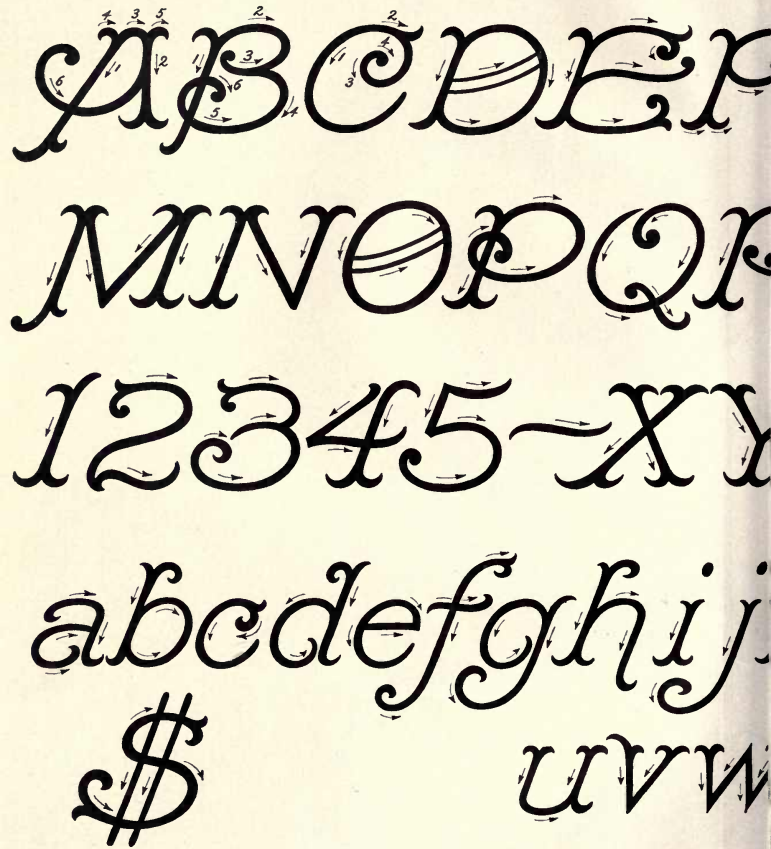 ABCDE
MNOPQ
12345~XY
abcdefghij
$ uvw